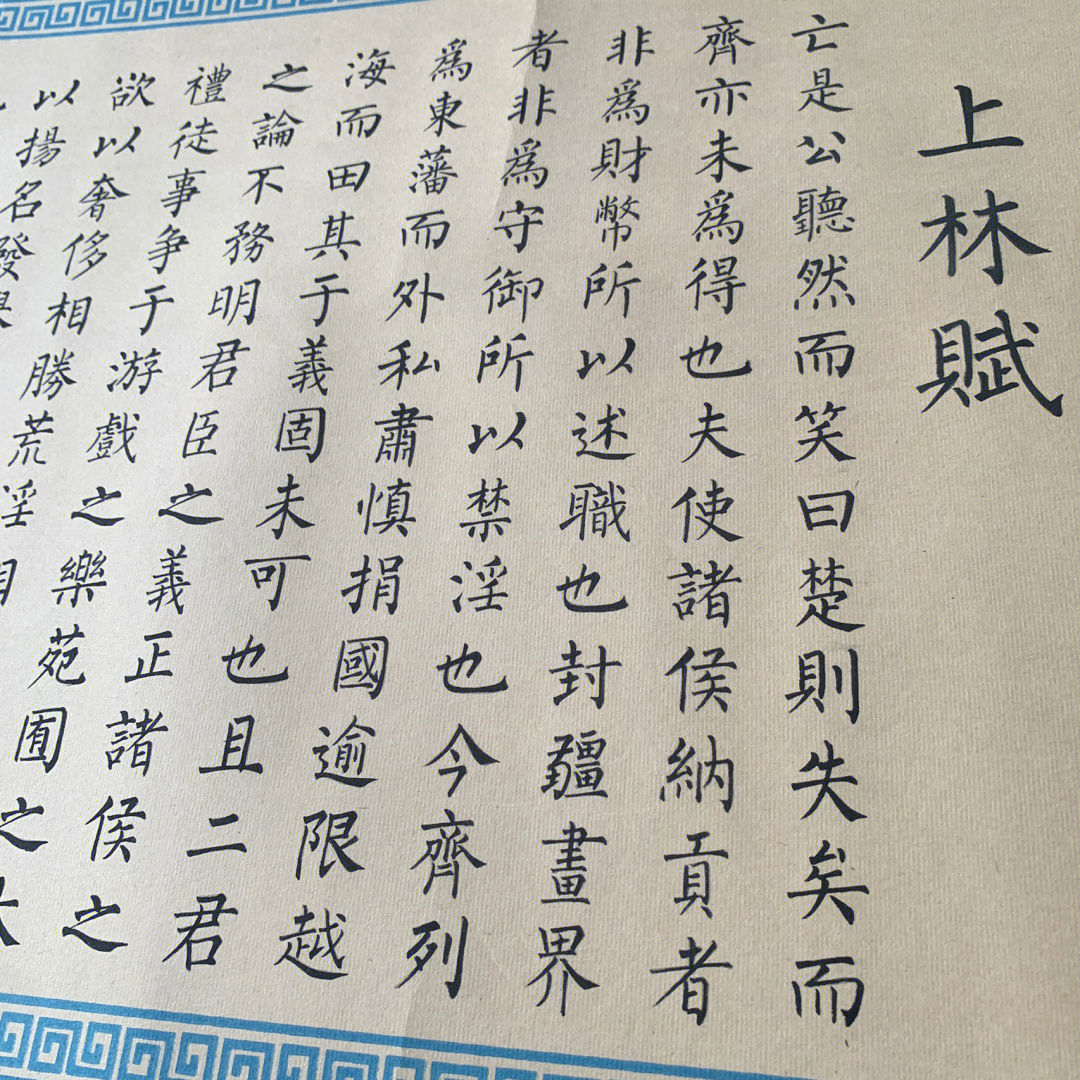 上林賦
亡是公聽然而笑曰楚則失矣而
齊亦未爲得也夫使諸侯納貢者
非爲財幣所以述職也封疆畫界
者非爲守御所以禁淫也今齊列
爲東藩而外私肅慎捐國逾限越
海而田其于義固未可也且二君
之論不務明君臣之義正諸侯之
禮徒事争于游戲之樂苑囿之
欲以奢侈相勝荒淫
以揚名發